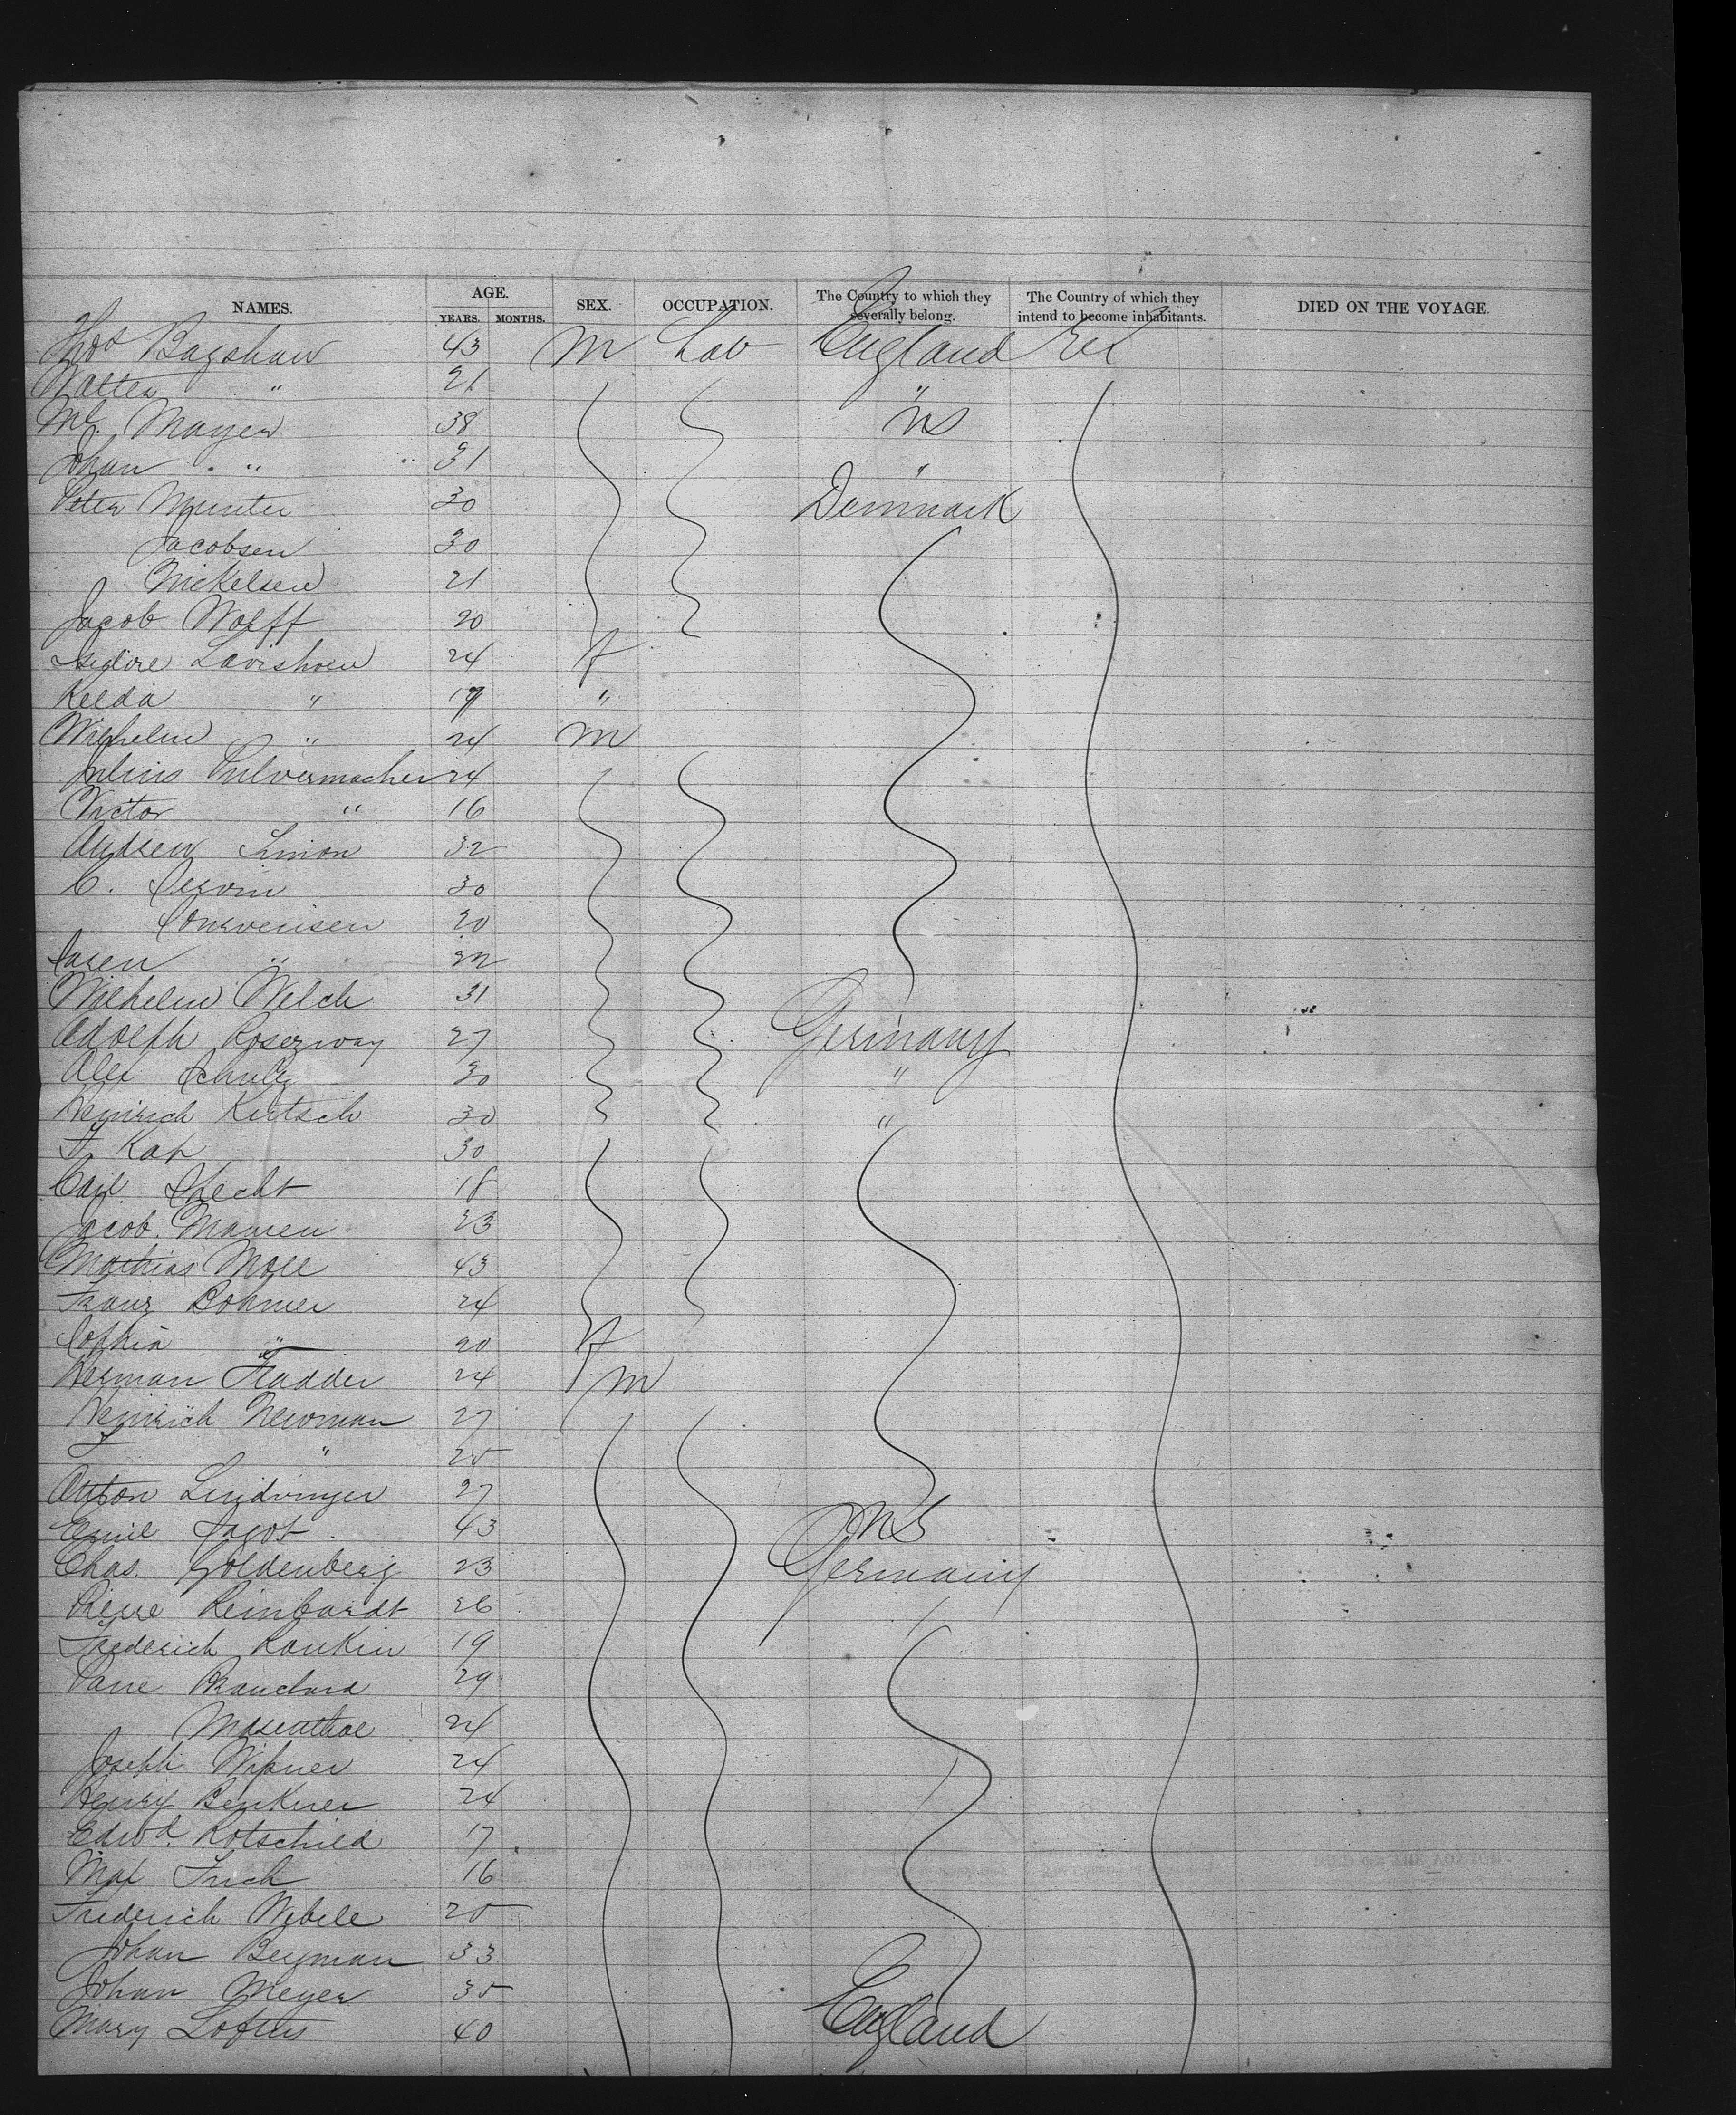 NAMES. AGE. SEX. OCCUPATION. The Country to which they severally belong. The Country of which they intend to become inhabitants. DIED ON THE VOYAGE.
YEARS. MONTHS.
Thos Bagshaw 43 M Lab England
Walter " 21 "
Mc. Mayer 38 US
Johan " 31 "
Peter Munter 30 Denmark
Jacobsen 30
Nickelsen 21
Jacob Wolff 20
Isidore Lavishoen 24 F
Kelda " 17 "
Wilhelm " 24 M
Julius Pulvermacher 24
Victor " 16
Andrew Simon 32
C. 30
20
" 22
Wilhelm Welch 31
Adolph Rosezway 27 Germany
Alex Schulz 30 "
Heinrich Kertsch 30 "
F. Kap 30
Carl Specht 18
Jacob Mamen 23
Mathias Moll 43
Franz Bohmer 24
Sophia " 20 F
Herman Fladder 24 M
Heinrich Newman 27
" 25
Anton Lindvinger 27
Emil Jagot 43 US
Chas. Goldenberg 23 Germany
Reinhardt 26
Frederich Rankin 19
Blanchard 29
Masenthal 24
Joseph Wipner 24
Henry Benkner 24
Edwd. Rotschild 17
Max 16
Friderich Webele 25
Johan Beyman 33
Johan Meyer 35
Mary Loftus 40 England